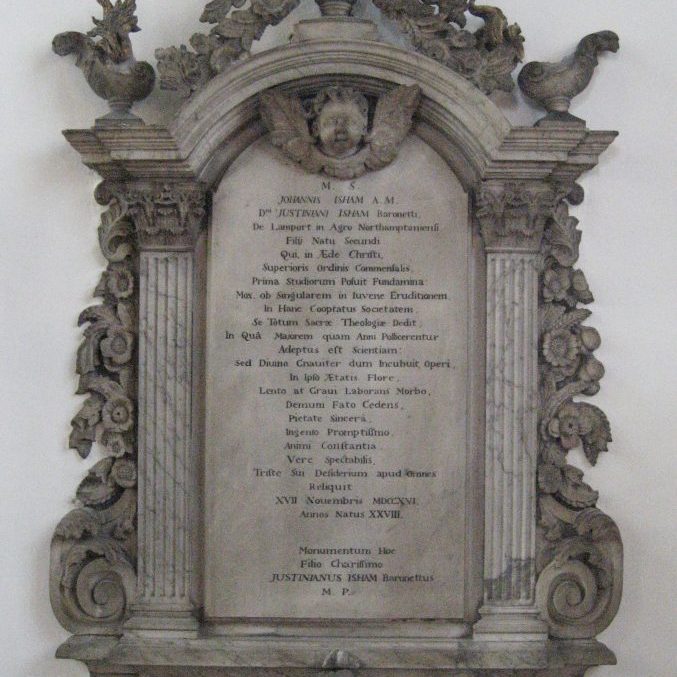 M. S.
JOHANNIS ISHAM A. M.
Dni JUSTINIANI ISHAM Baronetti,
De Lamport in Agro Northamptoniensi
Filij Natu Secundi
Qui, in Æde Christi,
Superioris Ordinis Commensalis.
Prima Studiorum Posuit Fundamina
Mox, ob Singularem in Iuvene Eruditionem
In Hanc Cooptatus Societatem,
Se Totum Sacræ Theologiæ Dedit;
In Quâ Maiorem quam Anni Pollicerentur
Adeptus est Scientiam:
Sed Divino Gnauiter dum Incubuit Operi,
In Ipso Ætatis Flore,
Lento at Graui Laborans Morbo,
Demum Fato Cedens,
Pietate Sincerâ,
Ingenio Promptissimo,
Animi Constantia
Vere Spectabilis,
Triste Sui Desiderium apud Omnes
Reliquit
XVII Nouembris MDCCXVI.
Annos Natus XXVIII.
Monumentum Hoc
Filio Charissimo
JUSTINIANUS ISHAM Baronettus
M. P.